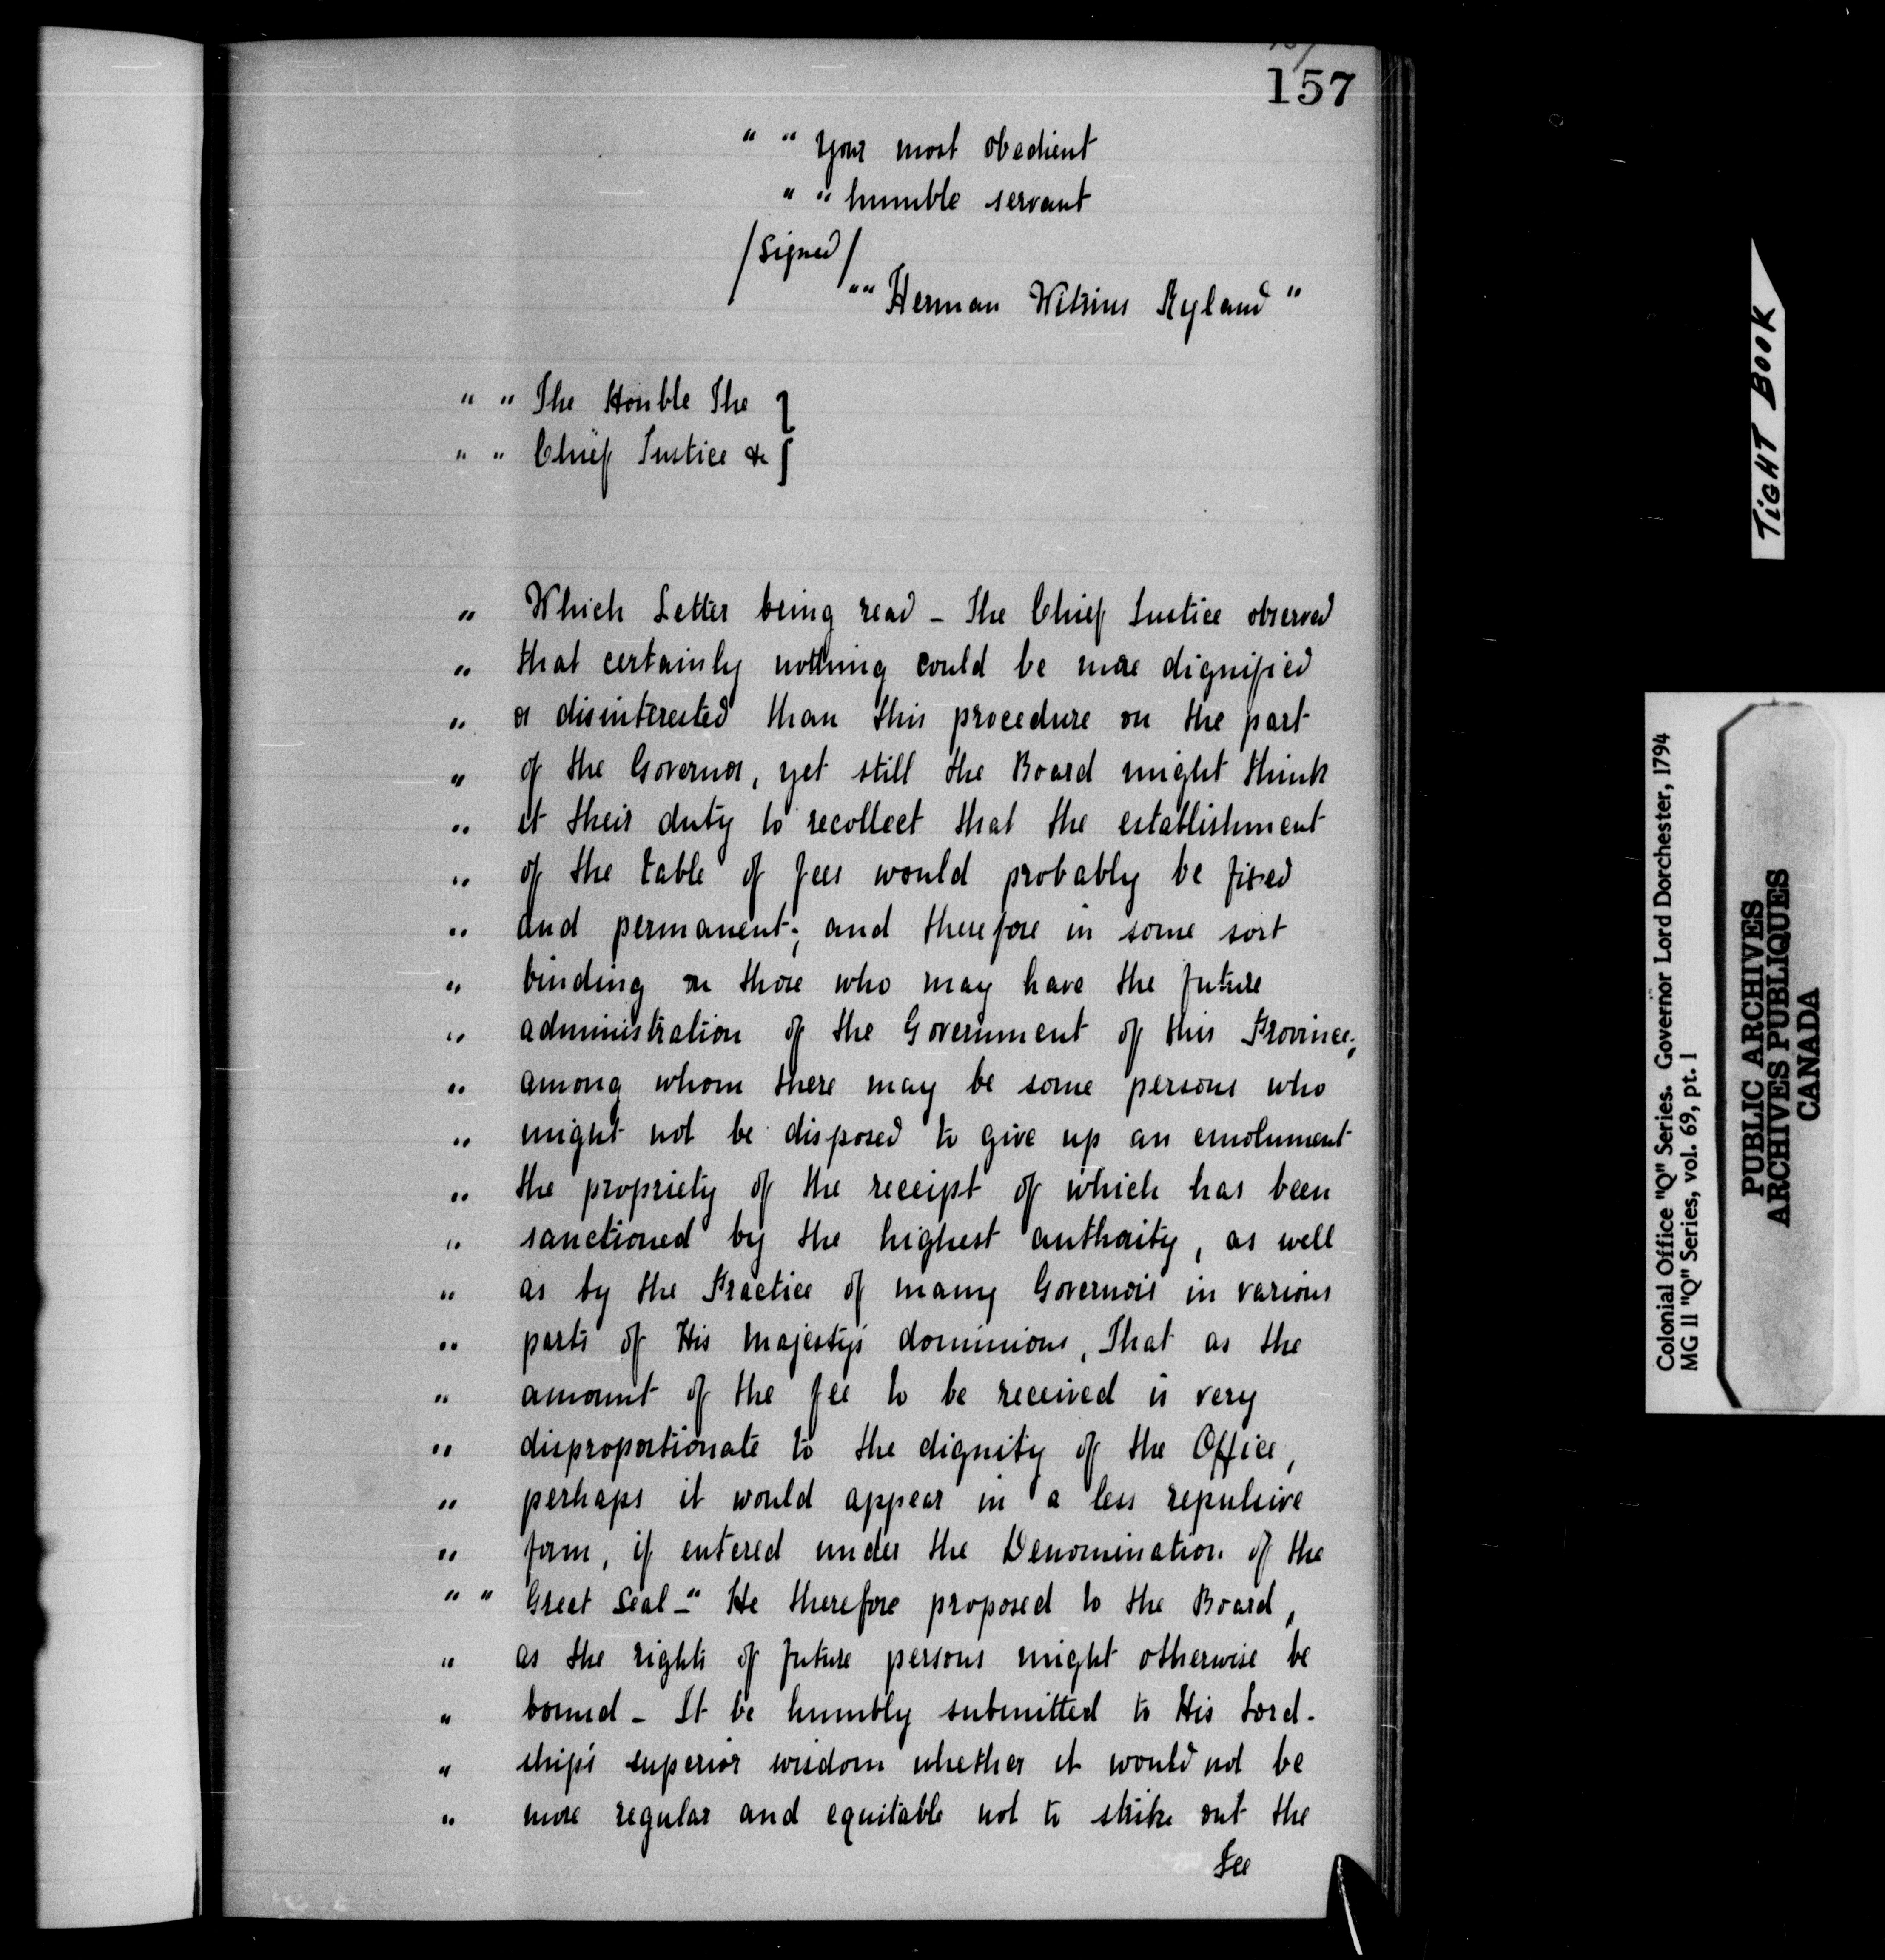 157
" " Your most obedient
" " humble servant
/Signed/
" " Herman Witsius Ryland "
" " The Honble The }
" " Chief Justice &c }
" Which Letter being read - The Chief Justice observed
" that certainly nothing could be more dignified
" or disinterested than this procedure on the part
" of the Governor, yet still the Board might think
" it their duty to recollect that the establishment
" of the table of fees would probably be fixed
" and permanent; and therefore in some sort
" binding on those who may have the future
" administration of the Government of this Province;
" among whom there may be some persons who
" might not be disposed to give up an emolument
" the propriety of the receipt of which has been
" sanctioned by the highest authority, as well
" as by the Practice of many Governors in various
" parts of His Majesty's dominions, That as the
" amount of the fee to be received is very
" disproportionate to the dignity of the Office,
" perhaps it would appear in a less repulsive
" form, if entered under the Denomination of the
" " Great Seal -" He therefore proposed to the Board,
" as the rights of future persons might otherwise be
" bound - It be humbly submitted to His Lord-
" ship's superior wisdom whether it would not be
" more regular and equitable not to strike out the
Fee
TIGHT BOOK
Colonial Office "Q" Series. Governor Lord Dorchester, 1794
MG 11 "Q" Series, vol. 69, pt. 1
PUBLIC ARCHIVES
ARCHIVES PUBLIQUES
CANADA